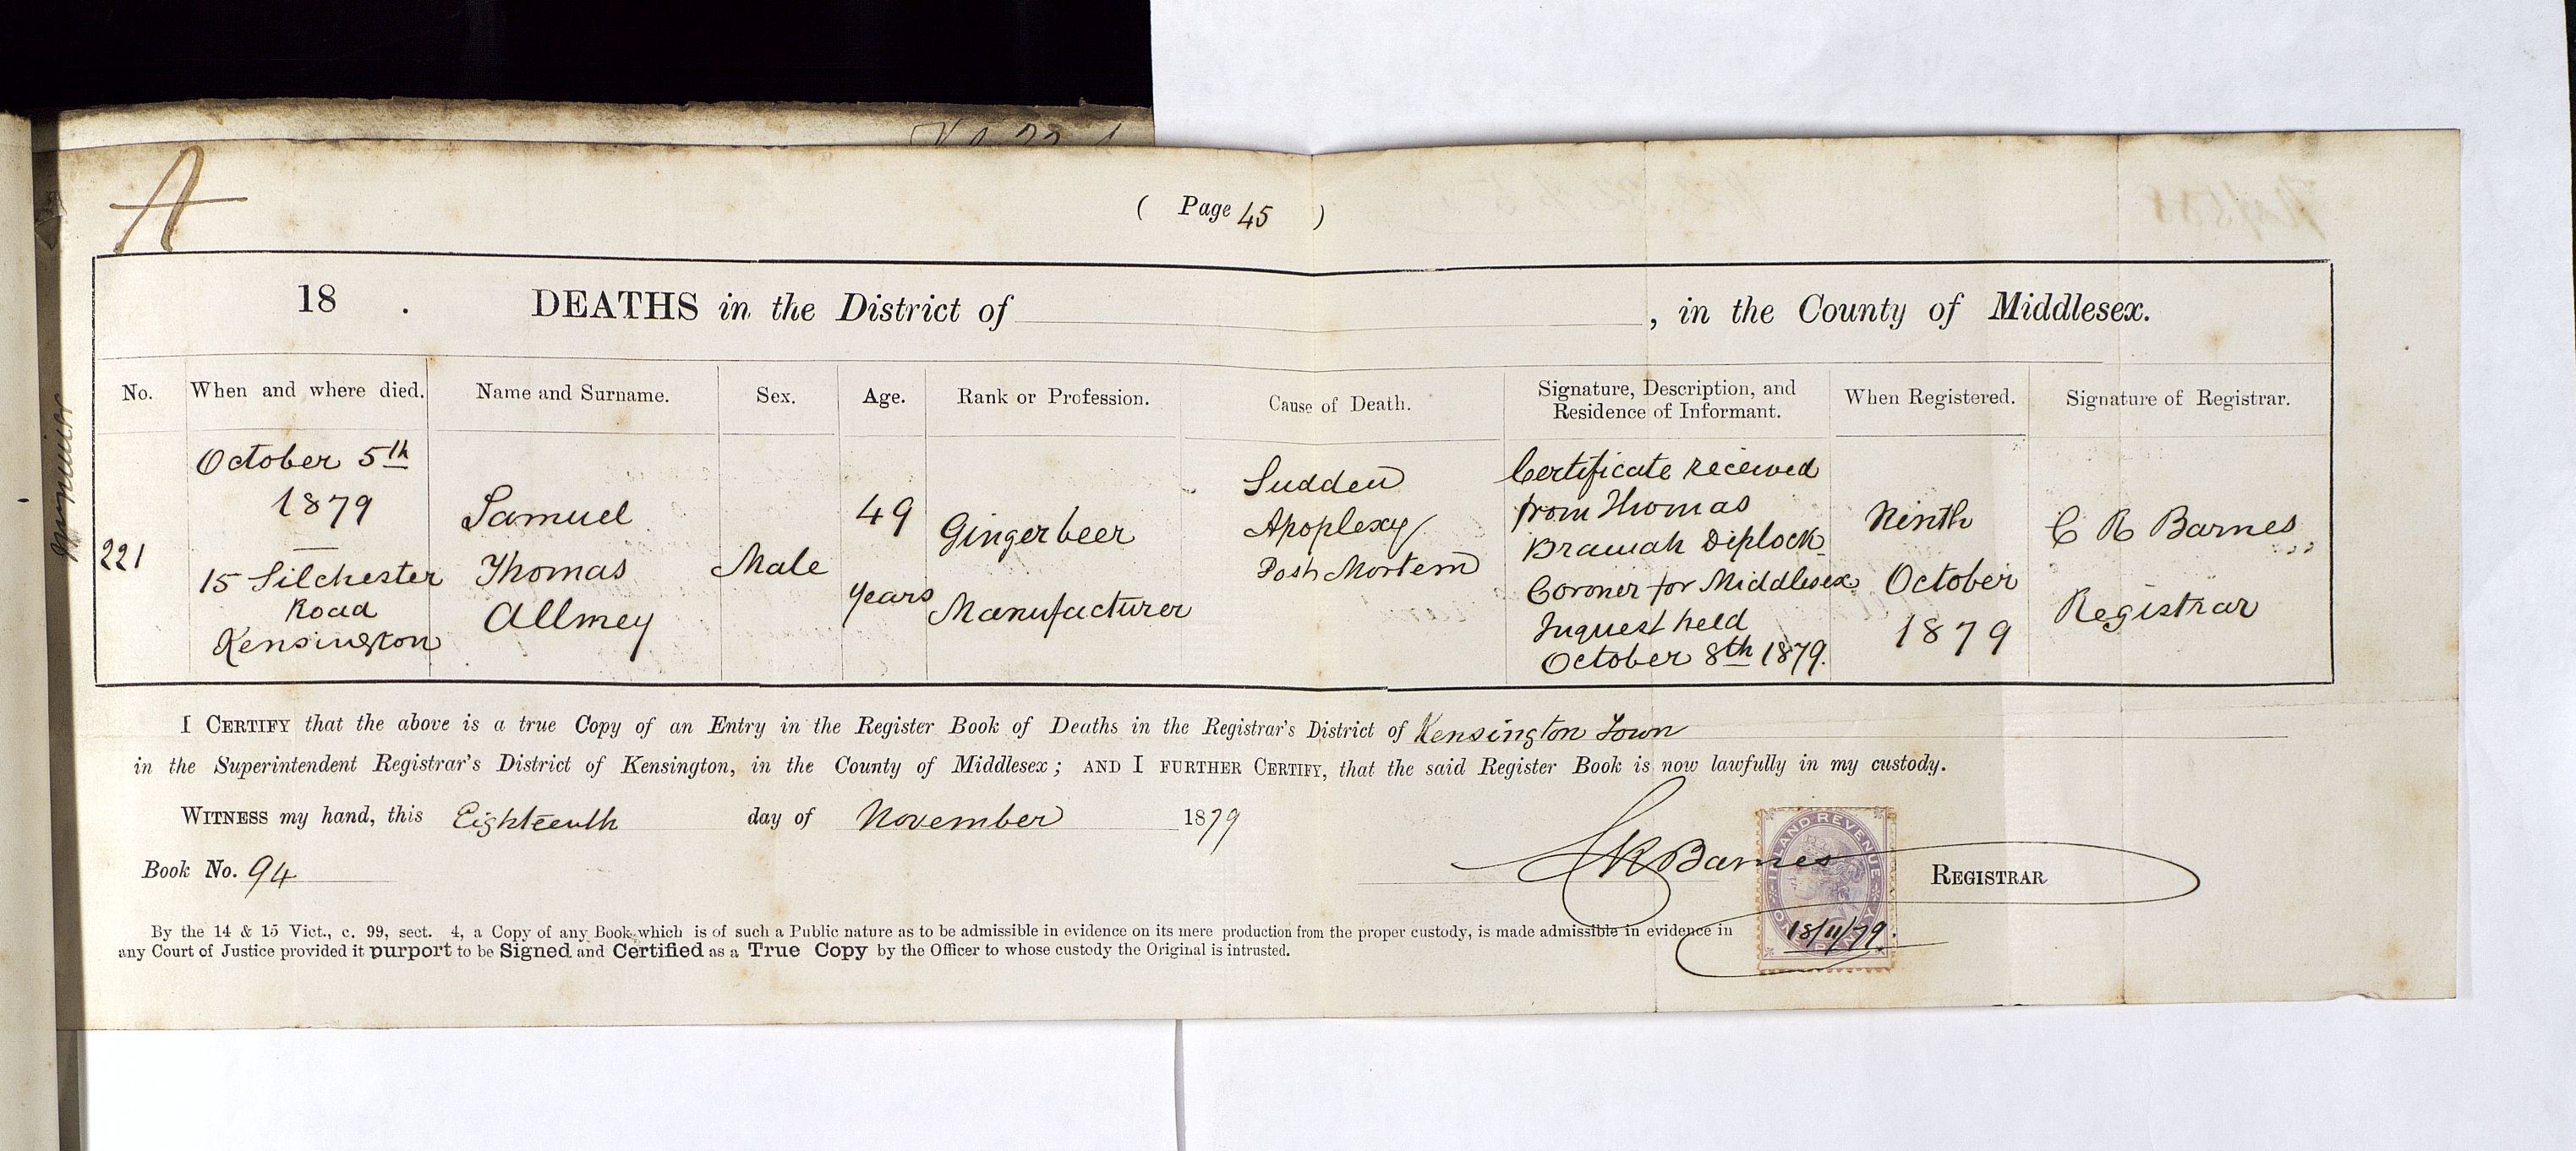 A
( Page 45 )
18 . DEATHS in the District of , in the County of Middlesex.
No. When and where died. Name and Surname. Sex. Age. Rank or Profession. Cause of Death. Signature, Description, and Residence of Informant. When Registered. Signature of Registrar.
221
October 5th
1879
15 Silchester
Road
Kensington
Samuel
Thomas
Allmey
Male
49
years
Gingerbeer
Manufacturer
Sudden
Apoplexy
Post Mortem
Certificate received
from Thomas
Bramah Diplock
Coroner for Middlesex
Inquest held
October 8th 1879.
Ninth
October
1879
C R Barnes
Registrar
I CERTIFY that the above is a true Copy of an Entry in the Register Book of Deaths in the Registrar's District of Kensington Town
in the Superintendent Registrar's District of Kensington, in the County of Middlesex; AND I FURTHER CERTIFY, that the said Register Book is now lawfully in my custody.
WITNESS my hand, this Eighteenth day of November 1879
Book No. 94
C R Barnes REGISTRAR
INLAND REVENUE
ONE PENNY
18/11/79
By the 14 & 15 Vict., c. 99, sect. 4, a Copy of any Book which is of such a Public nature as to be admissible in evidence on its mere production from the proper custody, is made admissible in evidence in
any Court of Justice provided it purport to be Signed and Certified as a True Copy by the Officer to whose custody the Original is intrusted.